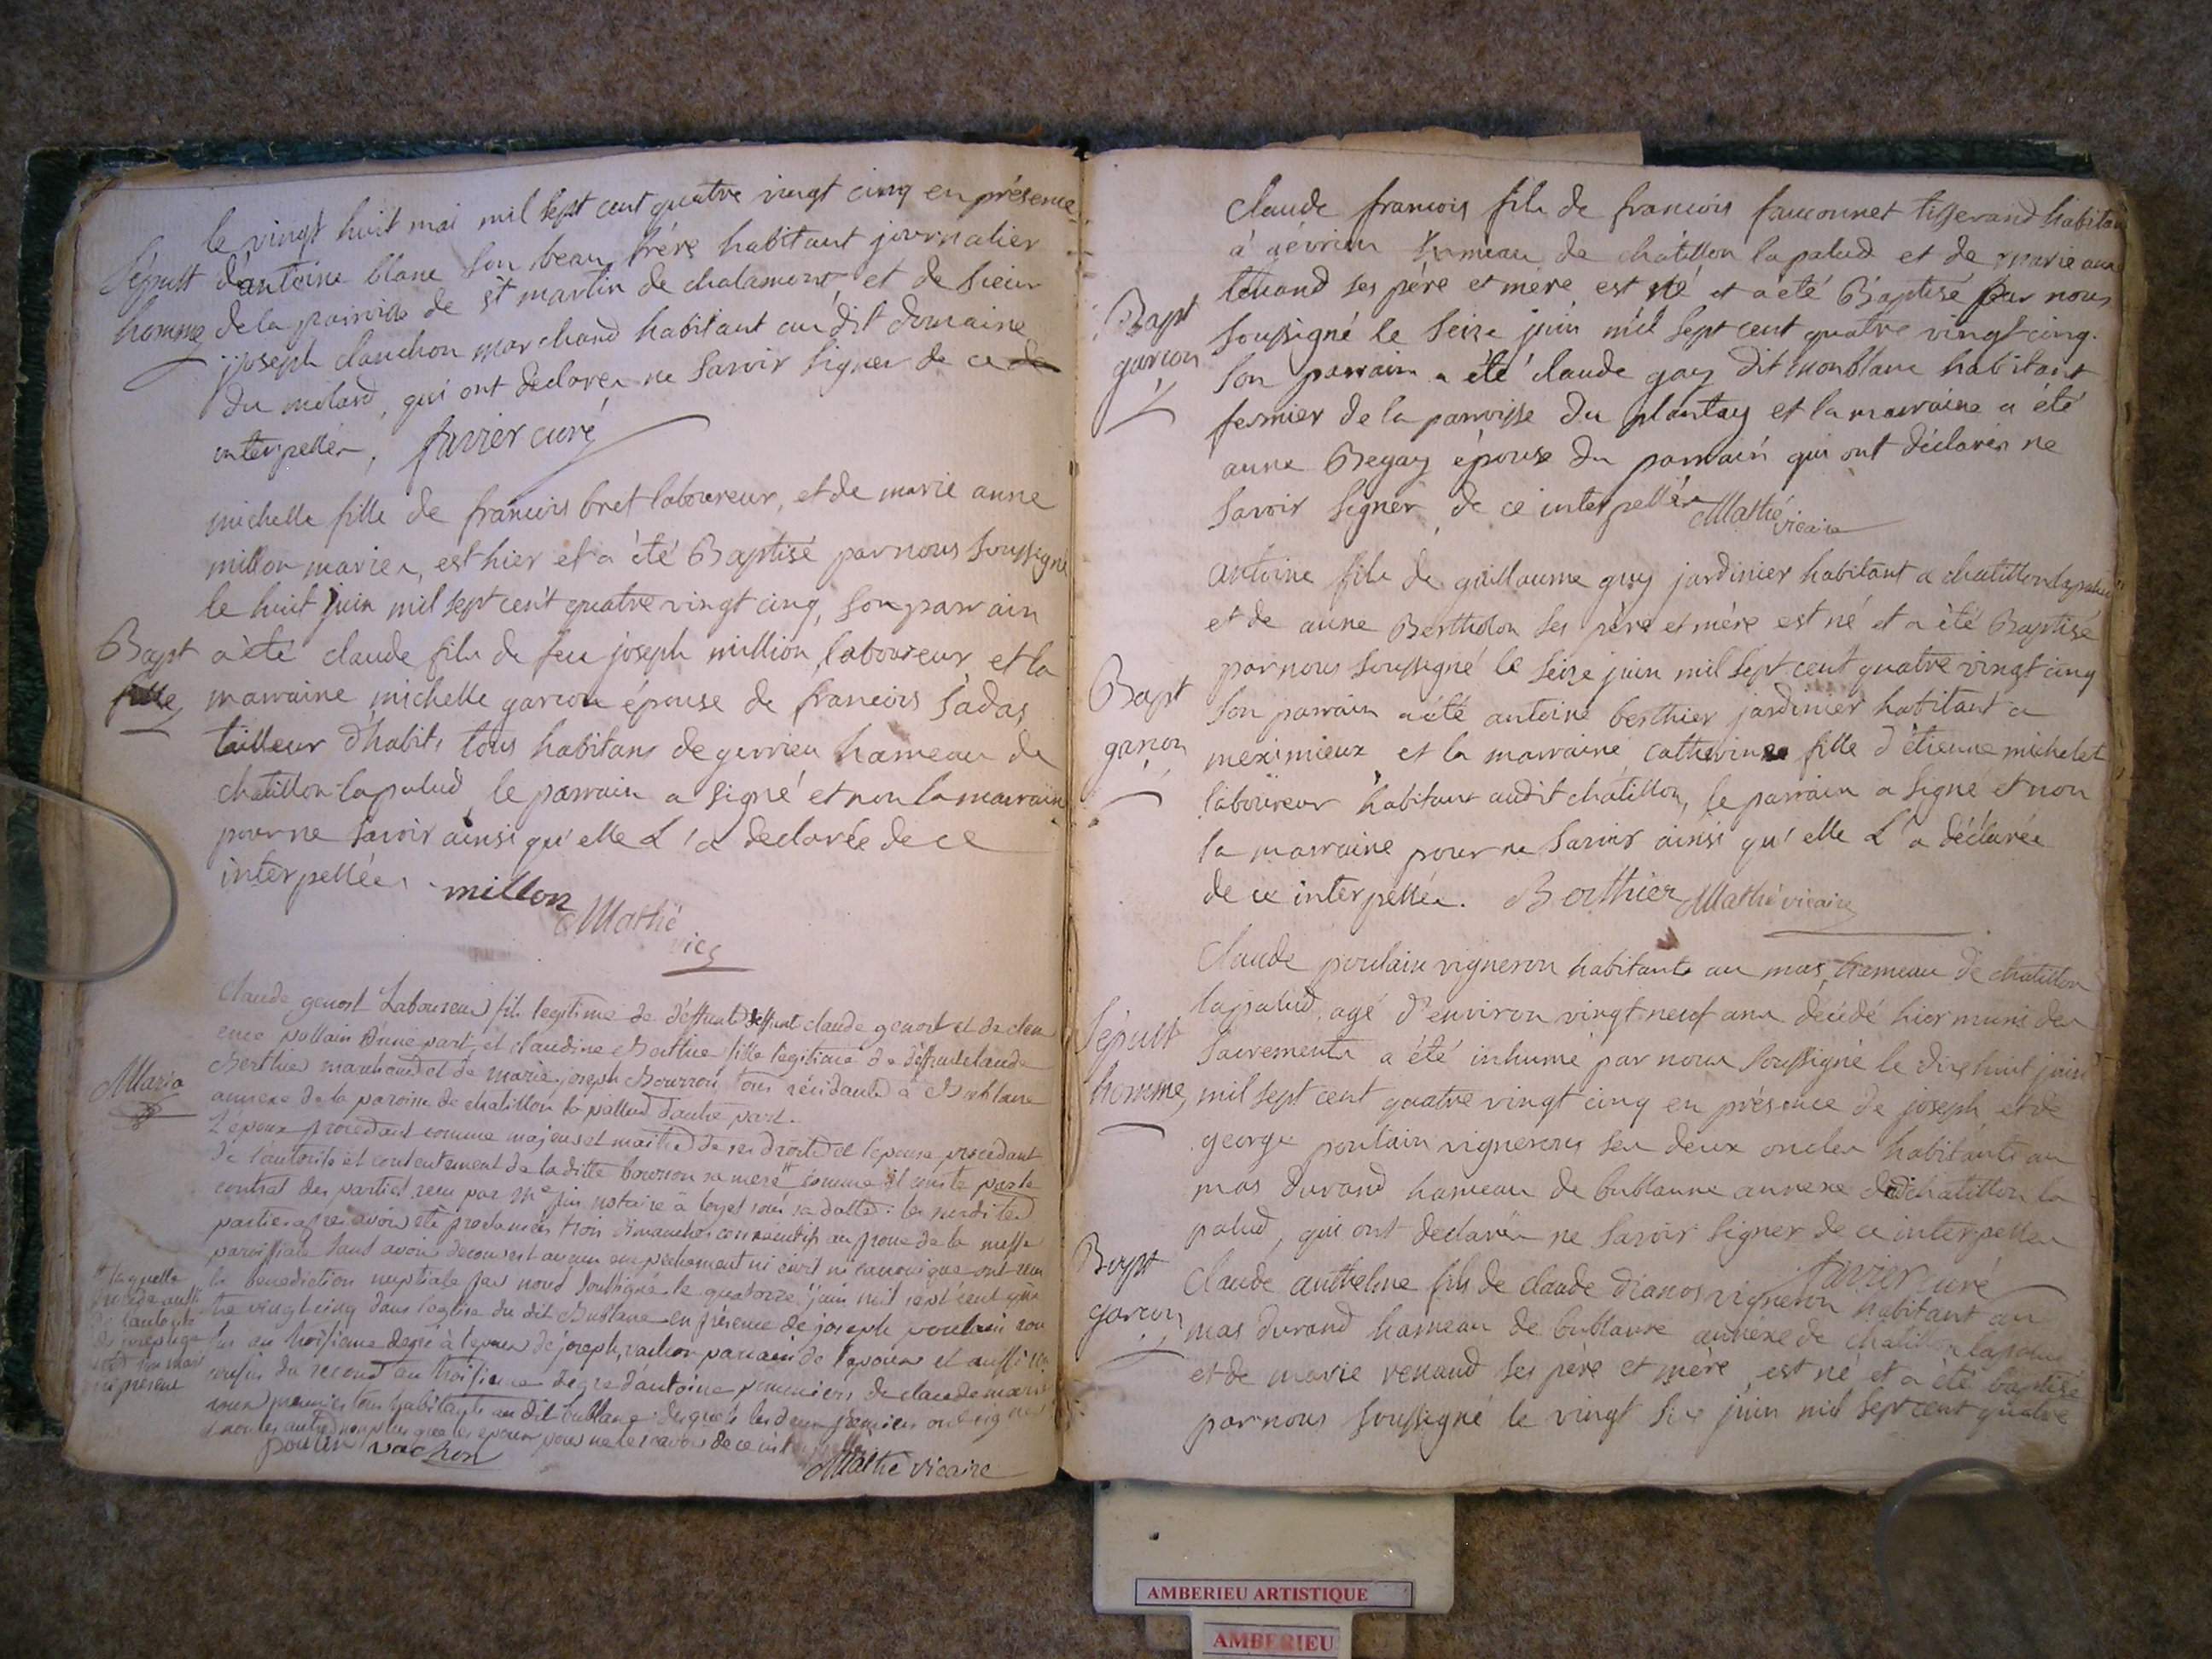 le vingt huit mai mil sept cent quatre vingt cinq en présence
Sépult
homme
d'antoine blanc son beau frére habitant journalier
de la paroisse de st martin de chalamont et de sieur
joseph clauchon marchand habitant au dit domaine
du molard, qui ont declarés ne savoir signer de ce
interpellés, favier curé
michelle fille de francois bret laboureur, et de marie anne
millon mariés, est hier et a été Baptisé par nous soussigné
le huit juin mil sept cent quatre vingt cinq, son parrain
Bapt
fille
a été claude fils de feu joseph million laboureur et la
marraine michelle garcon épouse de francois sadas
tailleur d'habits tous habitans de gevrieu hameau de
chatillon lapalud, le parrain a signé et non la marraine
pour ne savoir ainsi qu'elle L'a declarée de ce
interpellée. millon
Mathé
vic
claude genost Laboureur fils legitime de deffunt claude genost et de
poullain d'une part, et claudine Berthier fille legitime de deffunt claude
Berthier marchand et de marie joseph Bourron, tous résidants à Bublane
Maria
annexe de la paroisse de chatillon la pallud d'autre part.
L'epoux procedant comme majeur et maitre de ses droits et l'epouse procedant
de l'autorité et consentement de la ditte bourron sa mere comme il conste par le
contrat des parties recu par me notaire à loyet sous sa datte: les susdites
parties apres avoir eté proclamées trois dimanches consecutifs au prone de la messe
paroissiale sans avoir decouvert aucun empechement ni civil ni canonique ont recu
la benediction nuptiale par nous soussigné le quatorze juin mil sept cent qua
tre vingt cinq dans l'eglise du dit Bublane en présence de joseph poulain cou
sin au troisieme degré à l'epoux de joseph vachon parrain de l'epoux et aussi
cousin du second au troisieme degre d'antoine de claude marie
tous habitants au dit bublane desquels les deux premiers ont signés
et non les autres non plus que les epoux pour ne le savoir de ce
laquelle
procede aussi
de l'autorité
de joseph
son mari
present
poulin vachon
Mathé vicaire
Claude francois fils de francois fauconnet tisserand habitant
à gévrieu hameau de chatillon la palud et de marie anne
ses pére et mére est né et a été Baptisé par nous
Bapt
garcon
soussigné le seize juin mil sept cent quatre vingt cinq.
son parrain a été claude gay dit monblanc habitant
fermier de la parroisse du plantay et la marraine a été
anne Begay épouse du parrain qui ont déclarés ne
savoir signer de ce interpellés Mathé vicaire
antoine fils de guillaume guy jardinier habitant a chatillon lapalud
et de anne Bertholon ses pére et mère est né et a été Baptisé
par nous soussigné le seize juin mil sept cent quatre vingt cinq
Bapt
garcon
son parrain a été antoine berthier jardinier habitant a
meximieux et la marraine catherine fille d'étienne michelet
laboureur habitant audit chatillon, le parrain a signé et non
la marraine pour ne savoir ainsi qu'elle L'a déclarée
de ce interpellée. Berthier Mathé vicaire
Claude poulain vigneron habitant au mas, hameau de chatillon
lapalud, agé d'environ vingt neuf ans décédé hier munis des
Sépult
homme,
sacrements a été inhumé par nous soussigné le dixhuit juin
mil sept cent quatre vingt cinq en présence de joseph et de
george poulain vignerons ses deux oncles habitants au
mas durand hameau de bublanne annexe de chatillon la
palud, qui ont declarés ne savoir signer de ce interpellés
favier curé
Bapt
garcon
claude anthelme fils de claude dianos vigneron habitant au
mas durand hameau de bublanne annexe de chatillon lapalud
et de marie renaud ses père et mère, est né et a été baptisé
par nous soussigné le vingt six juin mil sept cent quatre
AMBERIEU ARTISTIQUE
AMBERIEU